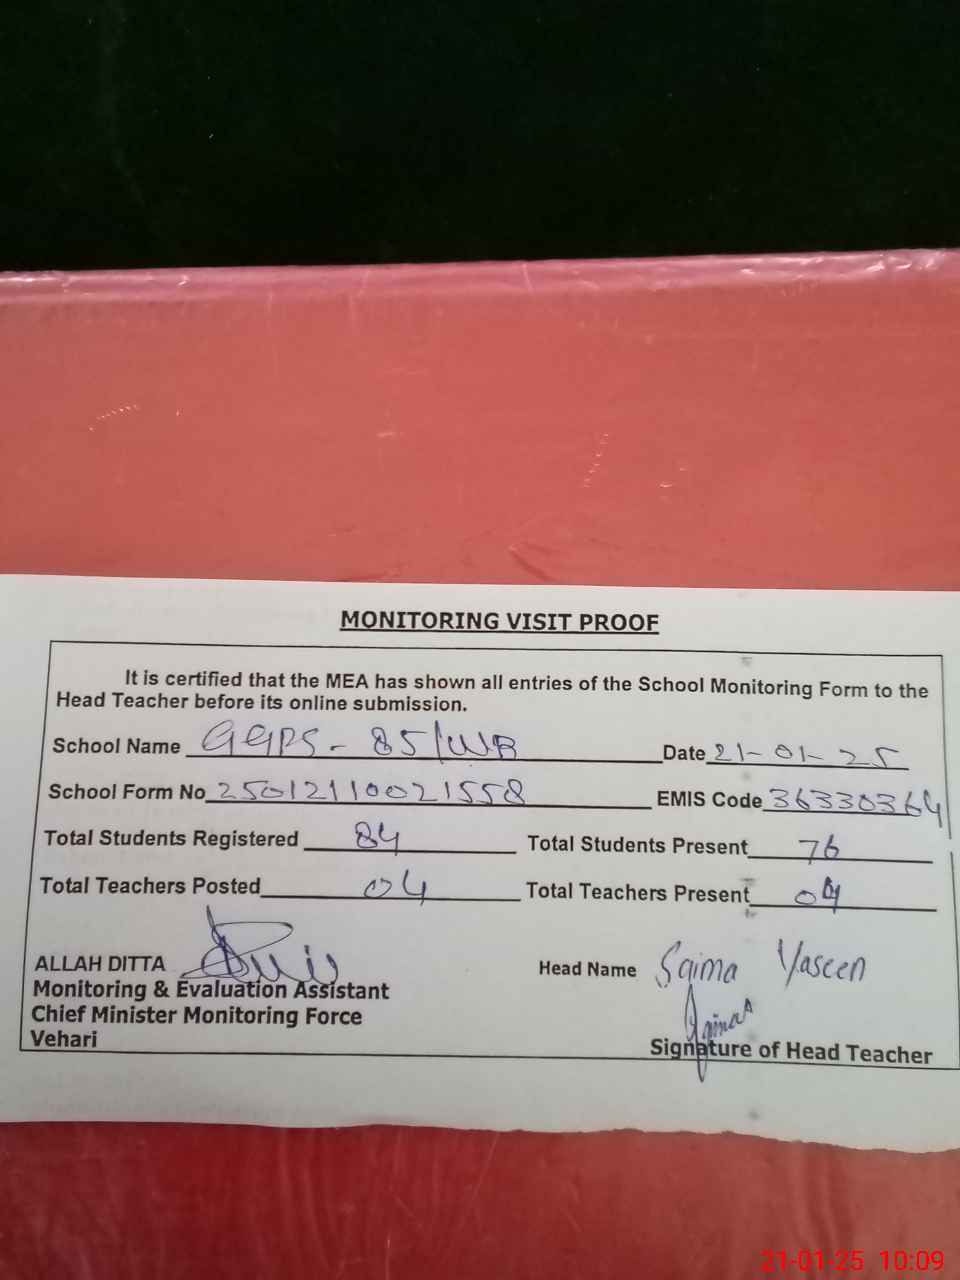 MONITORING VISIT PROOF
It is certified that the MEA has shown all entries of the School Monitoring Form to the
Head Teacher before its online submission.
School Name GGPS - 85/WB Date 21-01-25
School Form No 25012110021558 EMIS Code 36330364
Total Students Registered 84 Total Students Present 76
Total Teachers Posted 04 Total Teachers Present 04
ALLAH DITTA Head Name Saima Yaseen
Monitoring & Evaluation Assistant
Chief Minister Monitoring Force
Vehari Signature of Head Teacher
21-01-25 10:09